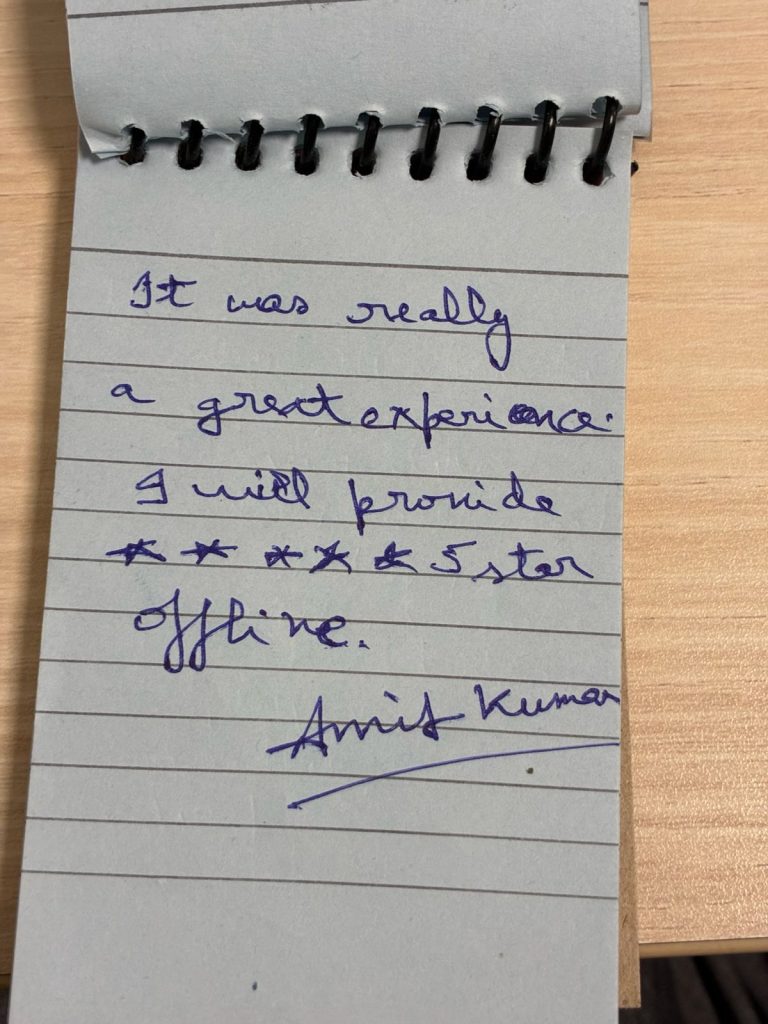 It was really
a great experience.
I will provide
★ ★ ★ ★ ★ 5 star
offline.
Amit Kumar